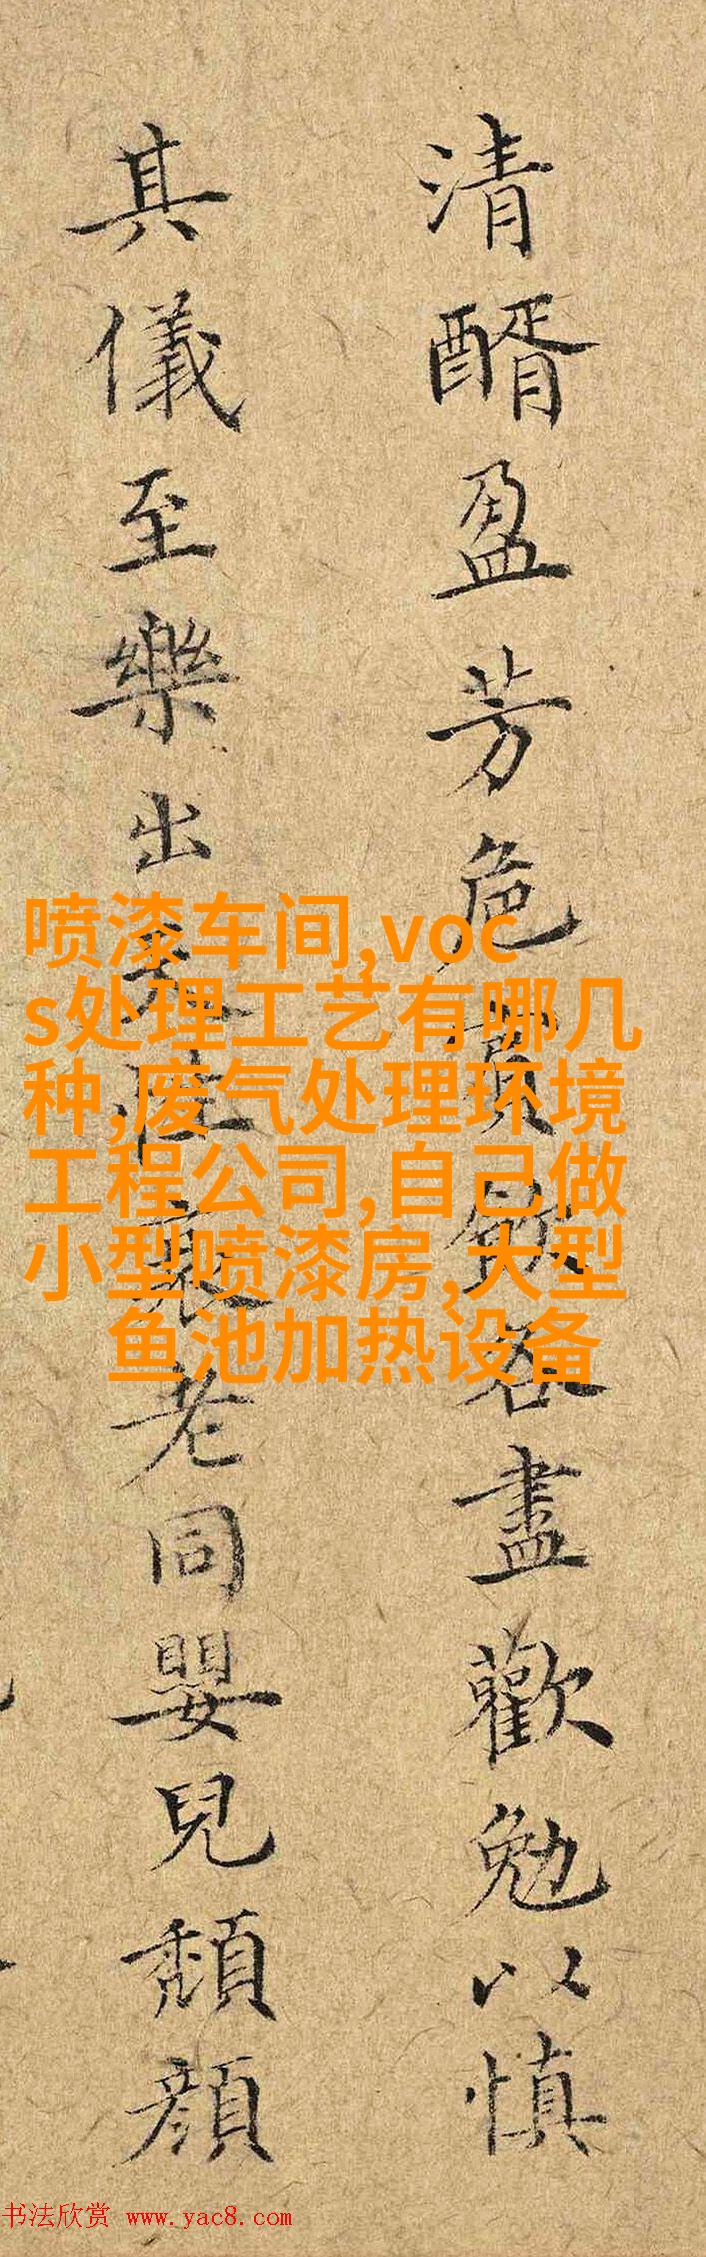 清醑盈芳巵飲各盡歡勉以慎
其儀至樂出性衰老同嬰兒頽顔
喷漆车间,voc
s处理工艺有哪几
种,废气处理环境
工程公司,自己做
小型喷漆房,大型
鱼池加热设备
书法欣赏 www.yac8.com